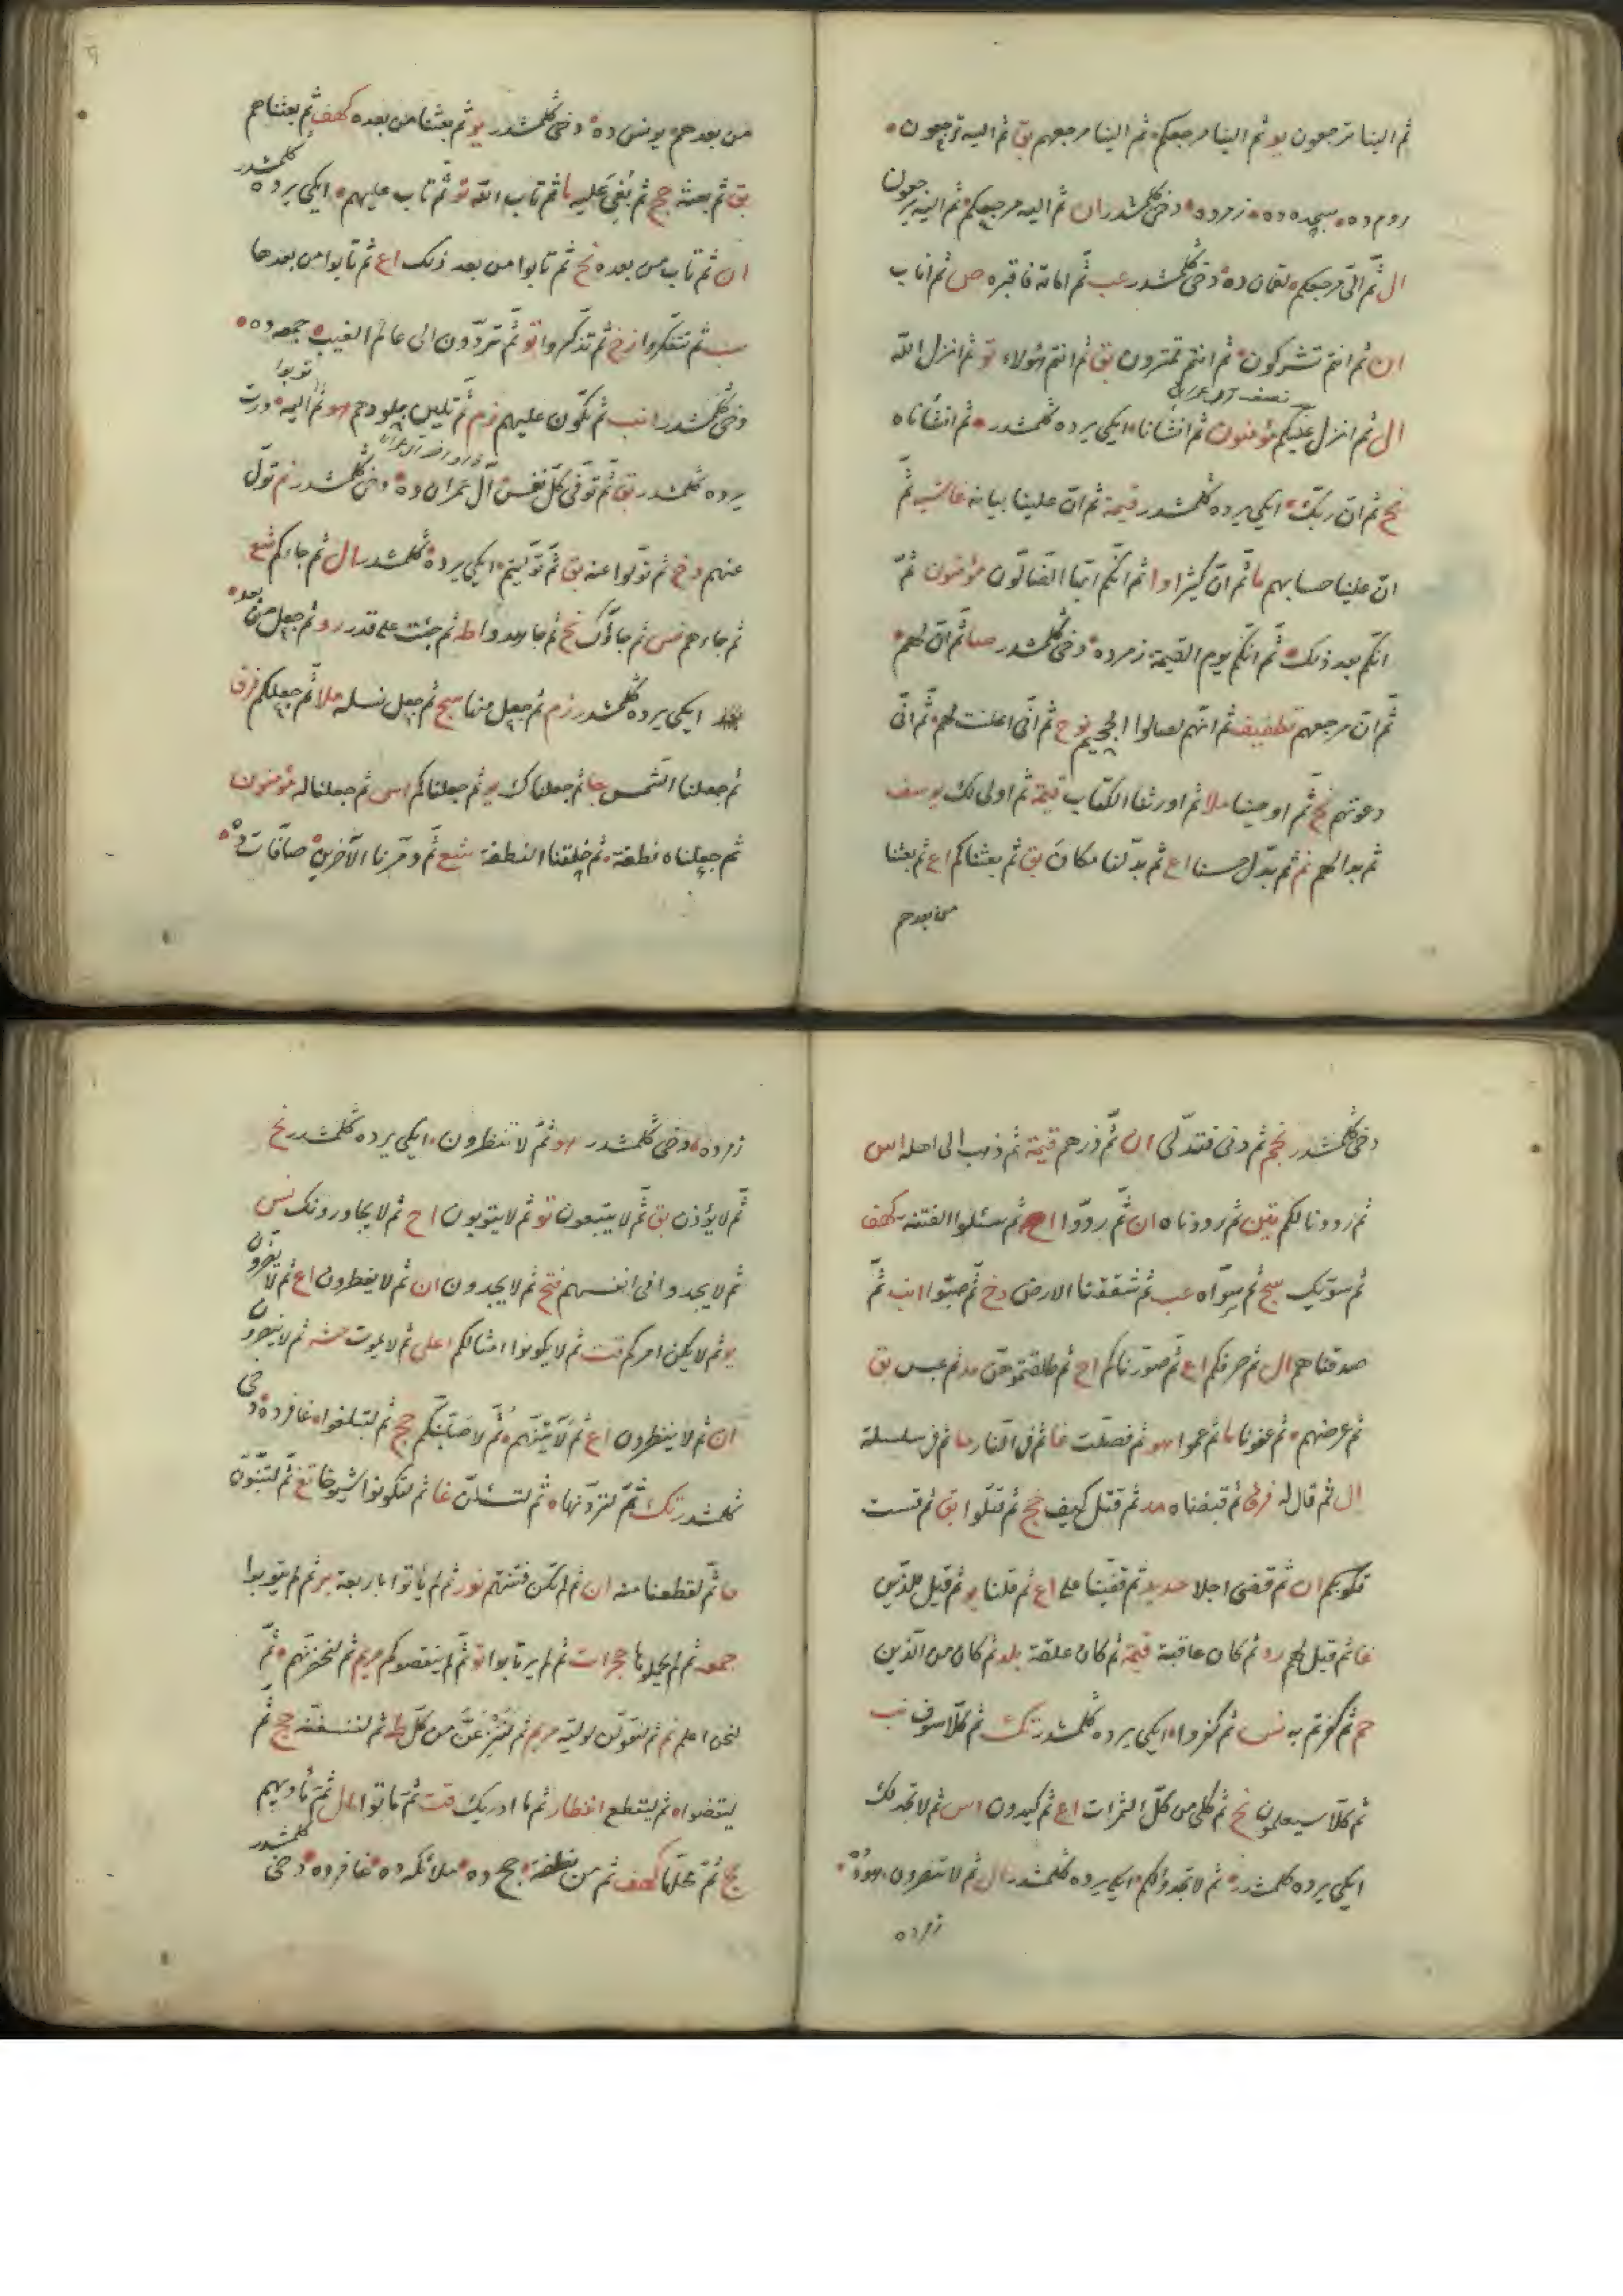 ثم الينا ترجعون يو ثم الينا مرجعكم ثم الينا مرجعهم بق ثم اليه ترجعون
روم ده سجده ده زمرده دخى كلمشدر ان ثم اليه مرجعكم ثم اليه يرجعون
ال ثم الى مرجعكم لقمان ده دخى كلمشدر عب ثم اماته فاقبره ص ثم اناب
ان ثم انتم تشركون ثم انتم تمترون بق ثم انتم هؤلاء تو ثم انزل الله
ال ثم انزل عليكم مؤمنون ثم انشأنا ايكى يرده كلمشدر ثم انشأناه
نح ثم ان ربك ايكى يرده كلمشدر قيمة ثم ان علينا بيانه غاشيه ثم
ان علينا حسابهم ما ثم ان كثيرا وا ثم انكم ايها الضالون مؤمنون ثم
انكم بعد ذلك ثم انكم يوم القيمة زمرده دخى كلمشدر صا ثم ان لهم
ثم ان مرجعهم تطفيف ثم انهم لصالوا الجحيم نوح ثم انى اعلنت لهم ثم انى
دعوتهم نح ثم اوحينا ملا ثم اورثنا الكتاب قيمة ثم اولى لك يوسف
ثم بدا لهم نم ثم بدل حسنا اع ثم بدلنا مكان بق ثم بعثناكم اع ثم بعثنا
من بعدهم
من بعدهم يونس ده دخى كلمشدر يو ثم بعثنا من بعده كهف ثم بعثناهم
بق ثم بعثه حج ثم بغى عليه ما ثم تاب الله تو ثم تاب عليهم ايكى يرده كلمشدر
ان ثم تاب من بعده نح ثم تابوا من بعد ذلك اع ثم تابوا من بعدها
ثم تتفكروا زخ ثم تذكروا تو ثم تردون الى عالم الغيب جمعه ده
دخى كلمشدر انب ثم تكون عليهم زم ثم تلين جلودهم هو ثم توبوا اليه درت
يرده كلمشدر بق ثم توفى كل نفس آل عمران ده دخى كلمشدر نم تول
عنهم دخ ثم تولوا عنه بق ثم توليتم ايكى يرده كلمشدر ال ثم جاءكم شع
ثم جاءهم نس ثم جاؤك نح ثم جاهدوا طه ثم جئت على قدر رو ثم جعل من بعد
ايكى يرده كلمشدر زم ثم جعل منها سج ثم جعل نسله ملا ثم جعلكم فرق
ثم جعلنا الشمس جا ثم جعلناك يو ثم جعلناكم اس ثم جعلنا له مؤمنون
ثم جعلناه نطفة ثم خلقنا النطفة شع ثم دمرنا الآخرين صافات ده
دخى كلمشدر نجم ثم دنى فتدلى ان ثم ذرهم قيمة ثم ذهب الى اهله اس
ثم رددنا لكم تين ثم رددناه ان ثم ردوا اح ثم سئلوا الفتنة كهف
ثم سويك سج ثم سواه عب ثم شققنا الارض دخ ثم صبوا انب ثم
صدقناهم ال ثم صرفكم اع ثم صورناكم اح ثم طلقتموهن مد ثم عبس بق
ثم عرضهم ثم عفونا ما ثم عموا هو ثم فصلت غا ثم فى النار حا ثم فى سلسلة
ال ثم قال له فرق ثم قبضناه مد ثم قتل كيف حج ثم قتلوا بق ثم قست
قلوبكم ان ثم قضى اجلا حديد ثم قفينا على اع ثم قلنا يو ثم قيل للذين
غا ثم قيل لهم رو ثم كان عاقبة قيمة ثم كان علقة بلد ثم كان من الذين
حم ثم كفرتم به نس ثم كفروا ايكى يرده كلمشدر تك ثم كلا سوف نب
ثم كلا سيعلمون نح ثم كلى من كل الثمرات اع ثم كيدون اس ثم لا تجد لك
ايكى يرده كلمشدر ثم لا تجدوا لكم ايكى يرده كلمشدر ال ثم لا تنصرون هود
زمرده
زمرده دخى كلمشدر هو ثم لا تنظرون ايكى يرده كلمشدر نح
ثم لا يؤذن بق ثم لا يتبعون تو ثم لا يتوبون اح ثم لا يجاورونك نس
ثم لا يجدوا فى انفسهم فتح ثم لا يجدون ان ثم لا يفطرون اع ثم لا يقصرون
يو ثم لا يكن امركم قت ثم لا يكونوا امثالكم اعلى ثم لا يموت حشر ثم لا ينصرون
ان ثم لا ينظرون اع ثم لآتينهم ثم لاصلبنكم حج ثم لتبلغوا غافرده دخى
كلمشدر تك ثم لترونها ثم لتسئلن غا ثم لتكونوا شيوخا تغ ثم لتنبؤن
حا ثم لقطعنا منه ان ثم لم تكن فتنتهم نور ثم لم يأتوا باربعة بر ثم لم يتوبوا
جمعه ثم لم يحملوها حجرات ثم لم يرتابوا تو ثم لم ينقصوكم مريم ثم لنحضرنهم ثم
لنحن اعلم نم ثم لنقولن لوليه مريم ثم لننزعن من كل طه ثم لننسفنه حج ثم
ليقضوا ثم ليقطع انفطار ثم ما ادريك قت ثم ماتوا ال ثم مأويهم
حج ثم محلها كهف ثم من نطفة حج ده ملائكه ده غافرده دخى كلمشدر